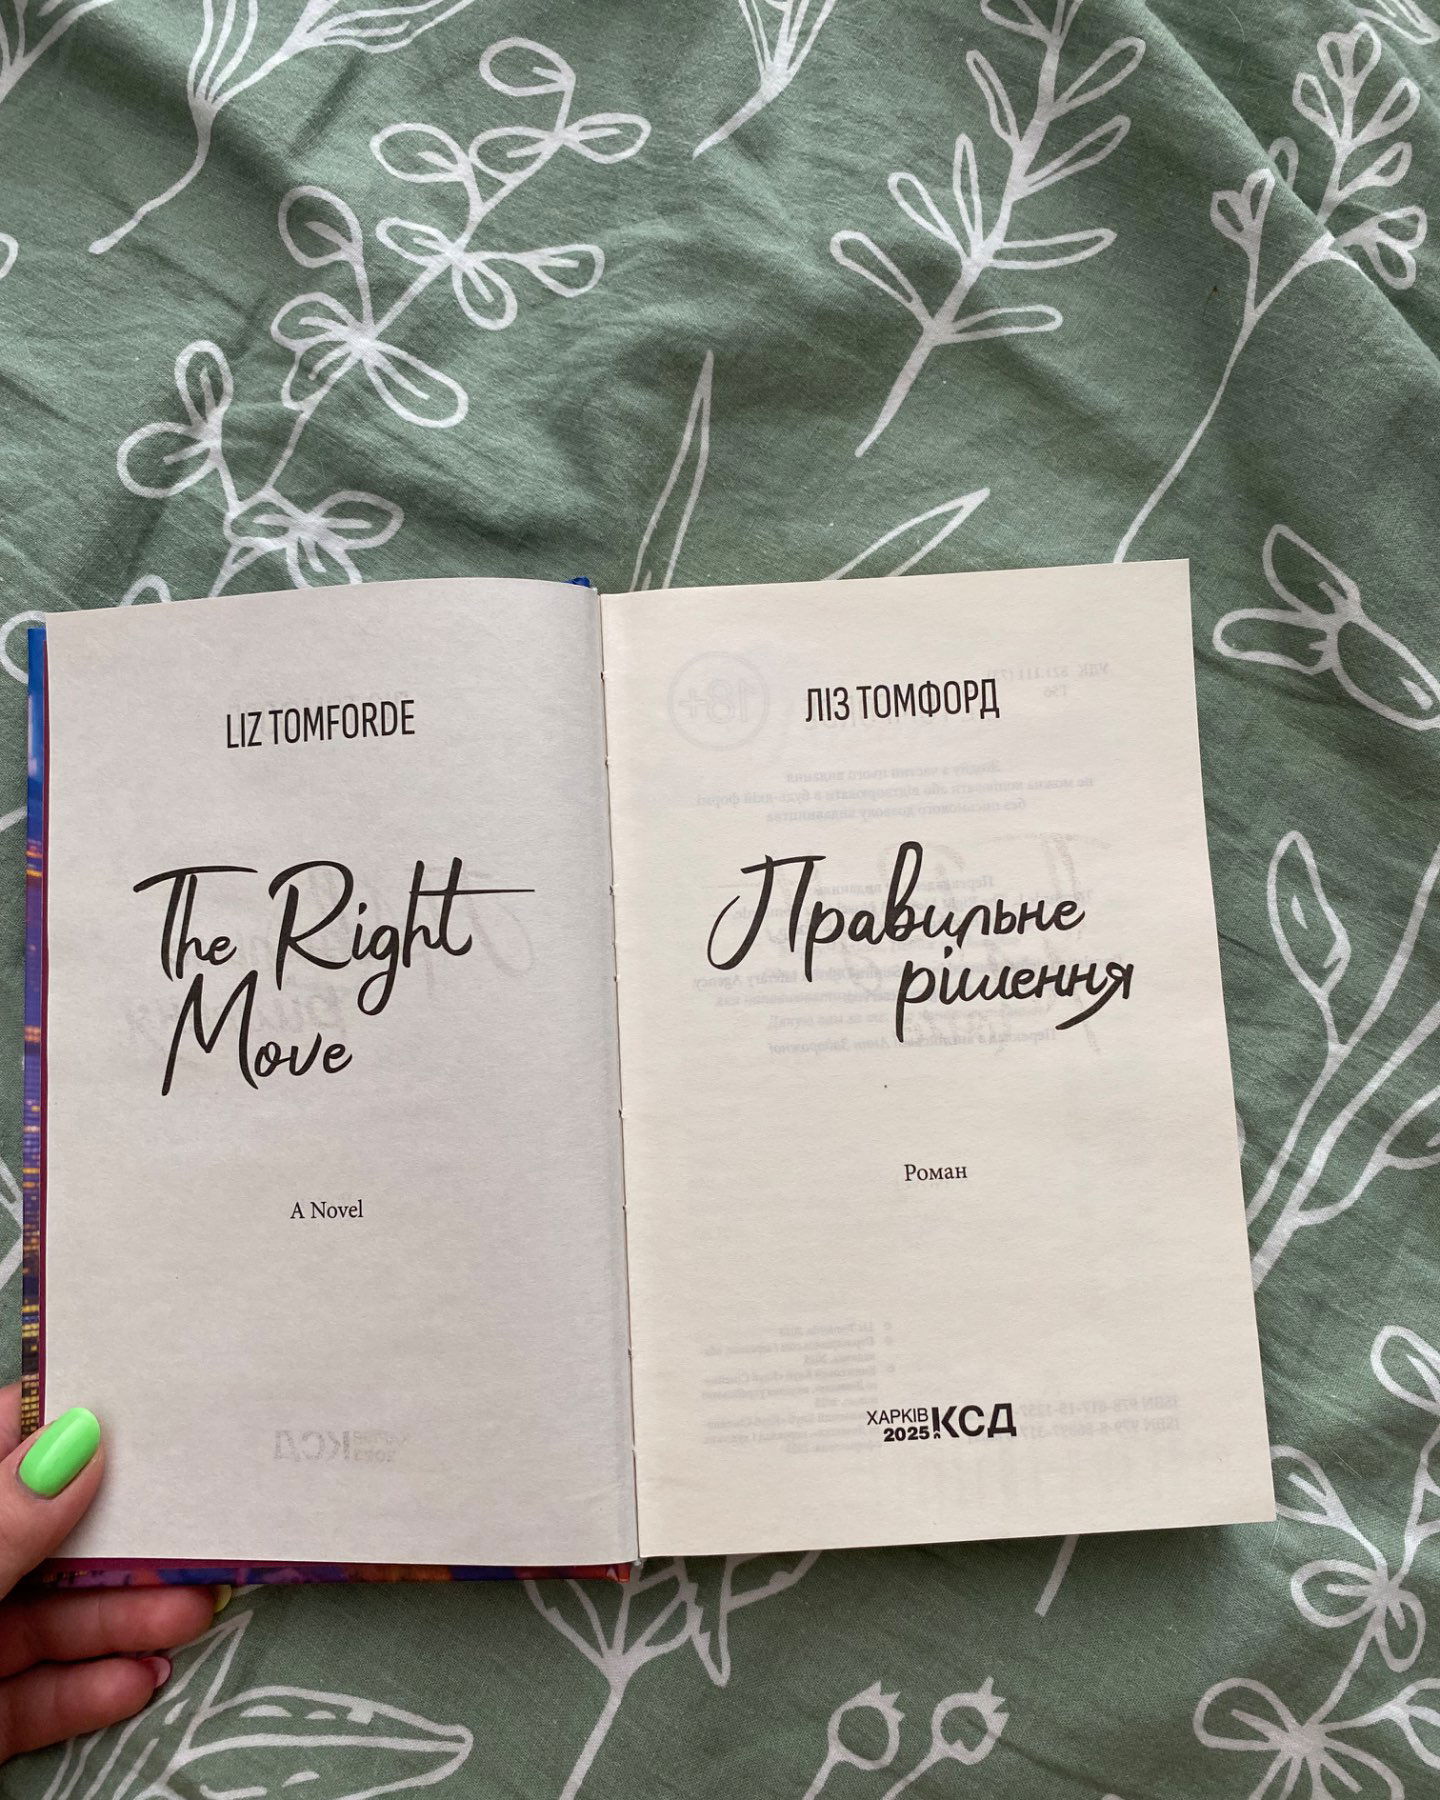 LIZ TOMFORDE
The Right
Move
A Novel
ЛІЗ ТОМФОРД
Правильне
рішення
Роман
ХАРКІВ
2025
КСД